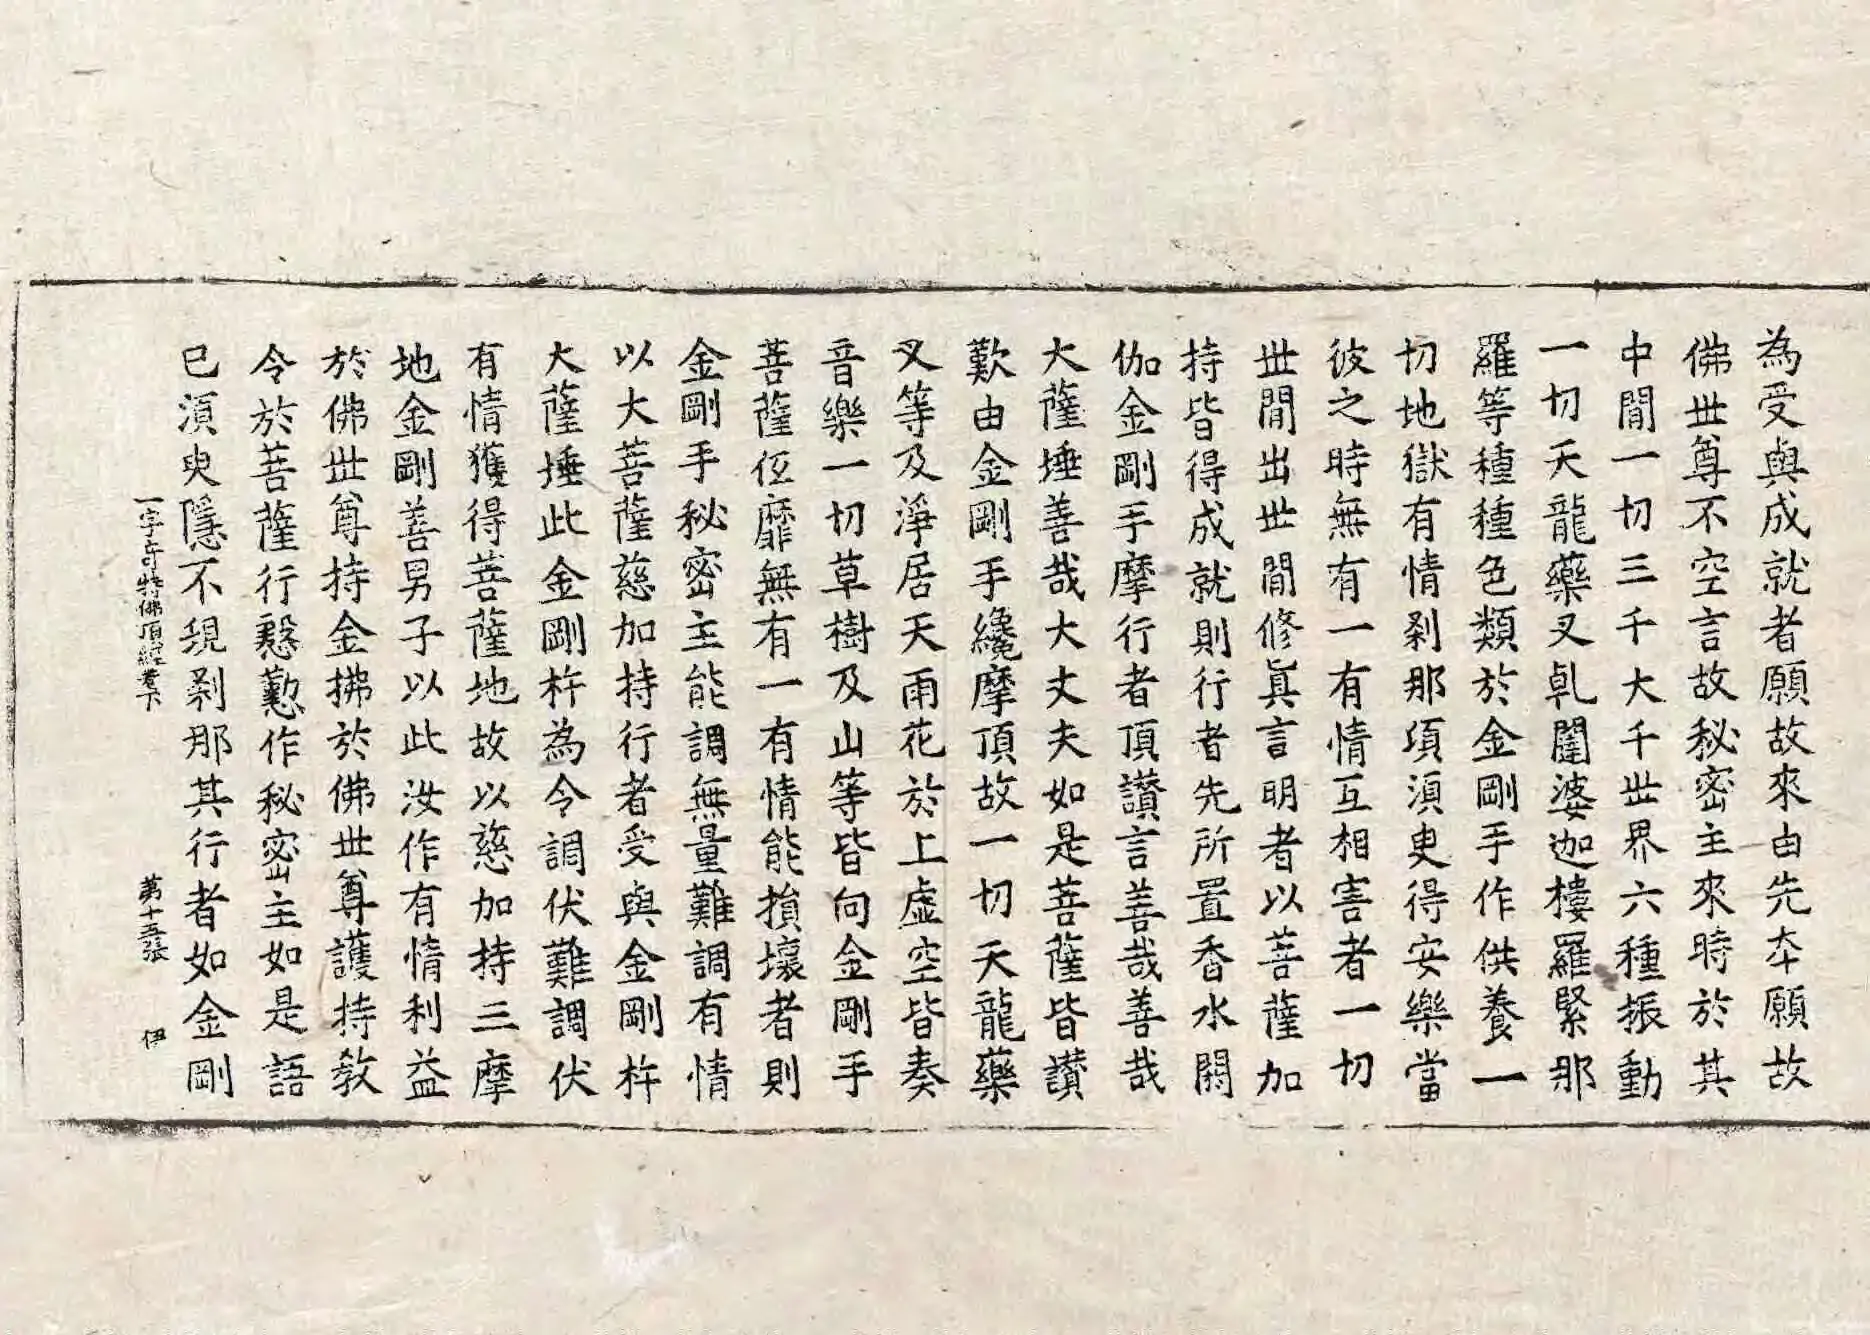 為受與成就者願故來由先夲願故
佛世尊不空言故秘密主來時於其
中閒一切三千大千世界六種振動
一切天龍藥叉乹闥婆迦樓羅緊那
羅等種種色類於金剛手作供養一
切地獄有情刹那項湏臾得安樂當
彼之時無有一有情互相害者一切
世閒出世閒修眞言明者以菩薩加
持皆得成就則行者先所置香水閼
伽金剛手摩行者頂讃言善哉善哉
大薩埵善哉大丈夫如是菩薩皆讃
歎由金剛手纔摩頂故一切天龍藥
叉等及淨居天雨花於上虛空皆奏
音樂一切草樹及山等皆向金剛手
菩薩低靡無有一有情能損壞者則
金剛手秘密主能調無量難調有情
以大菩薩慈加持行者受與金剛杵
大薩埵此金剛杵為令調伏難調伏
有情獲得菩薩地故以慈加持三摩
地金剛善男子以此汝作有情利益
於佛世尊持金拂於佛世尊護持教
令於菩薩行慇懃作秘密主如是語
已湏臾隱不現刹那其行者如金剛
一字奇特佛頂經卷下 第十五張 伊